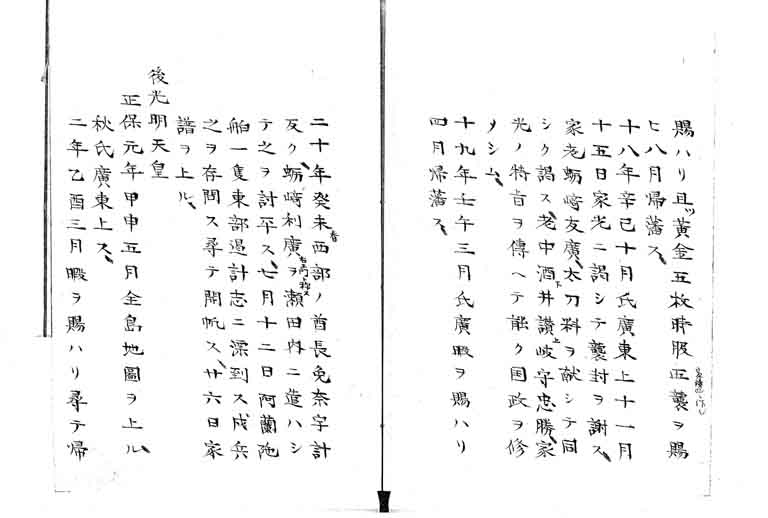 賜ハリ且ツ黃金五枚時服五襲ヲ賜
ヒ八月帰藩ス
十八年辛巳十月氏廣東上十一月
十五日家光ニ謁シテ襲封ヲ謝ス
家老蛎﨑友廣太刀料ヲ献シテ同
シク謁ス老中酒井讃岐守忠勝家
光ノ特旨ヲ傳ヘテ能ク国政ヲ修
メシム
十九年壬午三月氏廣暇ヲ賜ハリ
四月帰藩ス
二十年癸未春西部ノ酋長免奈字計
反ク蛎﨑利廣ヲ瀬田内ニ遣ハシ
テ之ヲ討平ス七月十二日阿蘭陀
舶一隻東部過計志ニ漂到ス戍兵
之ヲ存問ス尋テ開帆ス廿六日家
譜ヲ上ル
後光明天皇
正保元年甲申五月全島地圖ヲ上ル
秋氏廣東上ス
二年乙酉三月暇ヲ賜ハリ尋テ帰